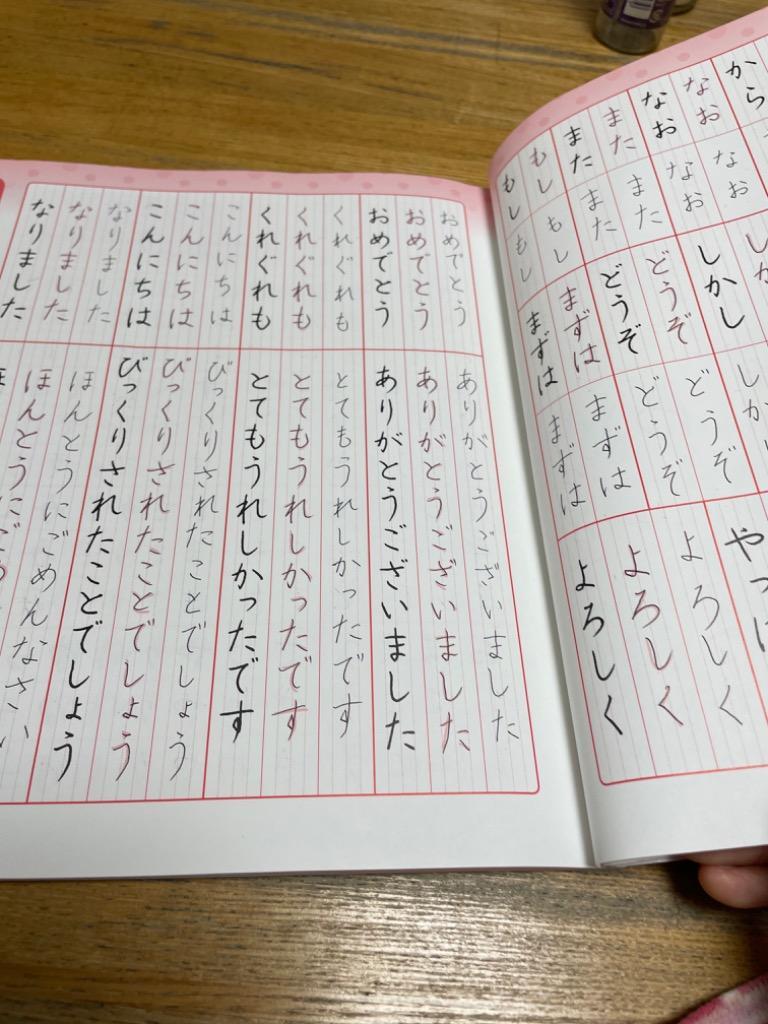 から
なお
なお
また
また
もし
もし
なお
なお
また
また
もし
もし
しかし
どうぞ
どうぞ
まずは
まずは
どうぞ
どうぞ
まずは
まずは
よろしく
よろしく
よろしく
おめでとう
おめでとう
おめでとう
くれぐれも
くれぐれも
くれぐれも
こんにちは
こんにちは
こんにちは
なりました
なりました
なりました
ありがとうございました
ありがとうございました
ありがとうございました
とてもうれしかったです
とてもうれしかったです
とてもうれしかったです
びっくりされたことでしょう
びっくりされたことでしょう
びっくりされたことでしょう
ほんとうにごめんなさい
ほんとうにご